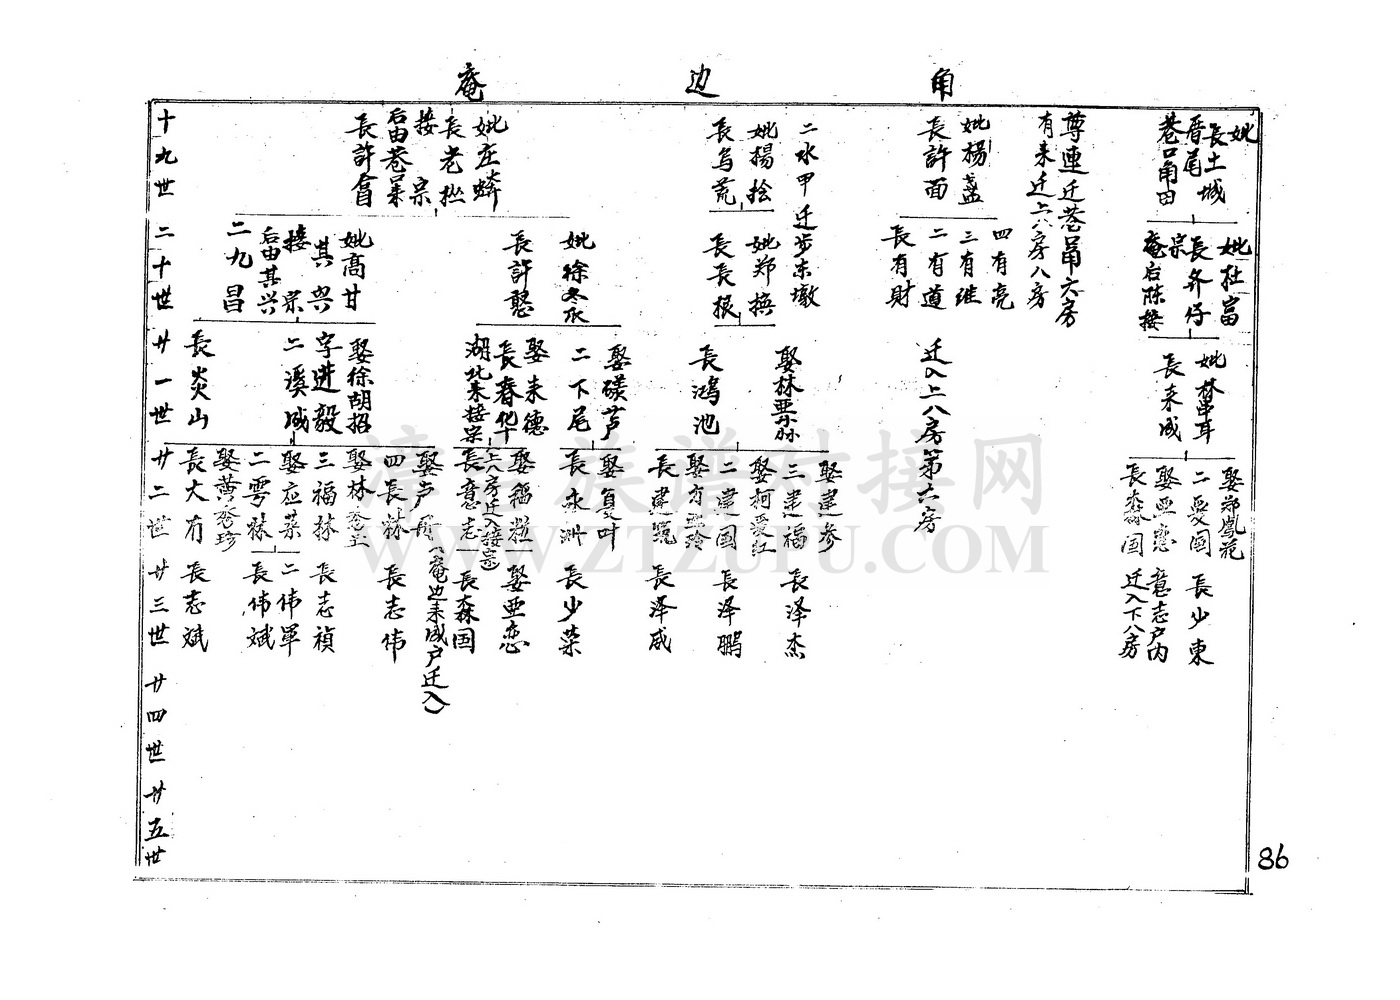 角 边 庵
妣
長土城
厝尾
巷口甬田
妣杜富
長斉仔
宗
庵后陈接
妣林串耳
長来成
娶郑鳳花
二受国
娶亜恋
長森国
長少東
意志户内
迁入下八房
尊連迁巷甬六房
有来迁上八房八房
妣楊盏
長許面
四有亮
三有继
二有道
長有财
迁入上八房第六房
二水甲迁步东墩
妣楊捡
長乌荒
妣郑撫
長長根
長鴻池
娶建参
三建福
娶柯爱红
二建国
長泽杰
長泽鹏
長泽咸
妣庄蟒
長老
接宗
后由巷
長許
妣徐冬
長許憨
娶磺芦
二下尾
娶来德
長春华
湖北来接宗
娶复叶
長永洲
上八房迁入接宗
長意志
長少荣
娶亜恋
長森国
妣高甘
其兴
接宗
后由其兴
二九昌
娶徐胡招
字进毅
二溪城
長炎山
娶卢
(庵边来成户迁入)
四長林
三福林
娶应菜
二雩林
娶黄秀珍
長大有
長志伟
長志禎
二伟軍
長伟斌
長志斌
十九世
二十世
廿一世
廿二世
廿三世
廿四世
廿五世
86
漳州族谱对接网
WWW.ZTZUPU.COM